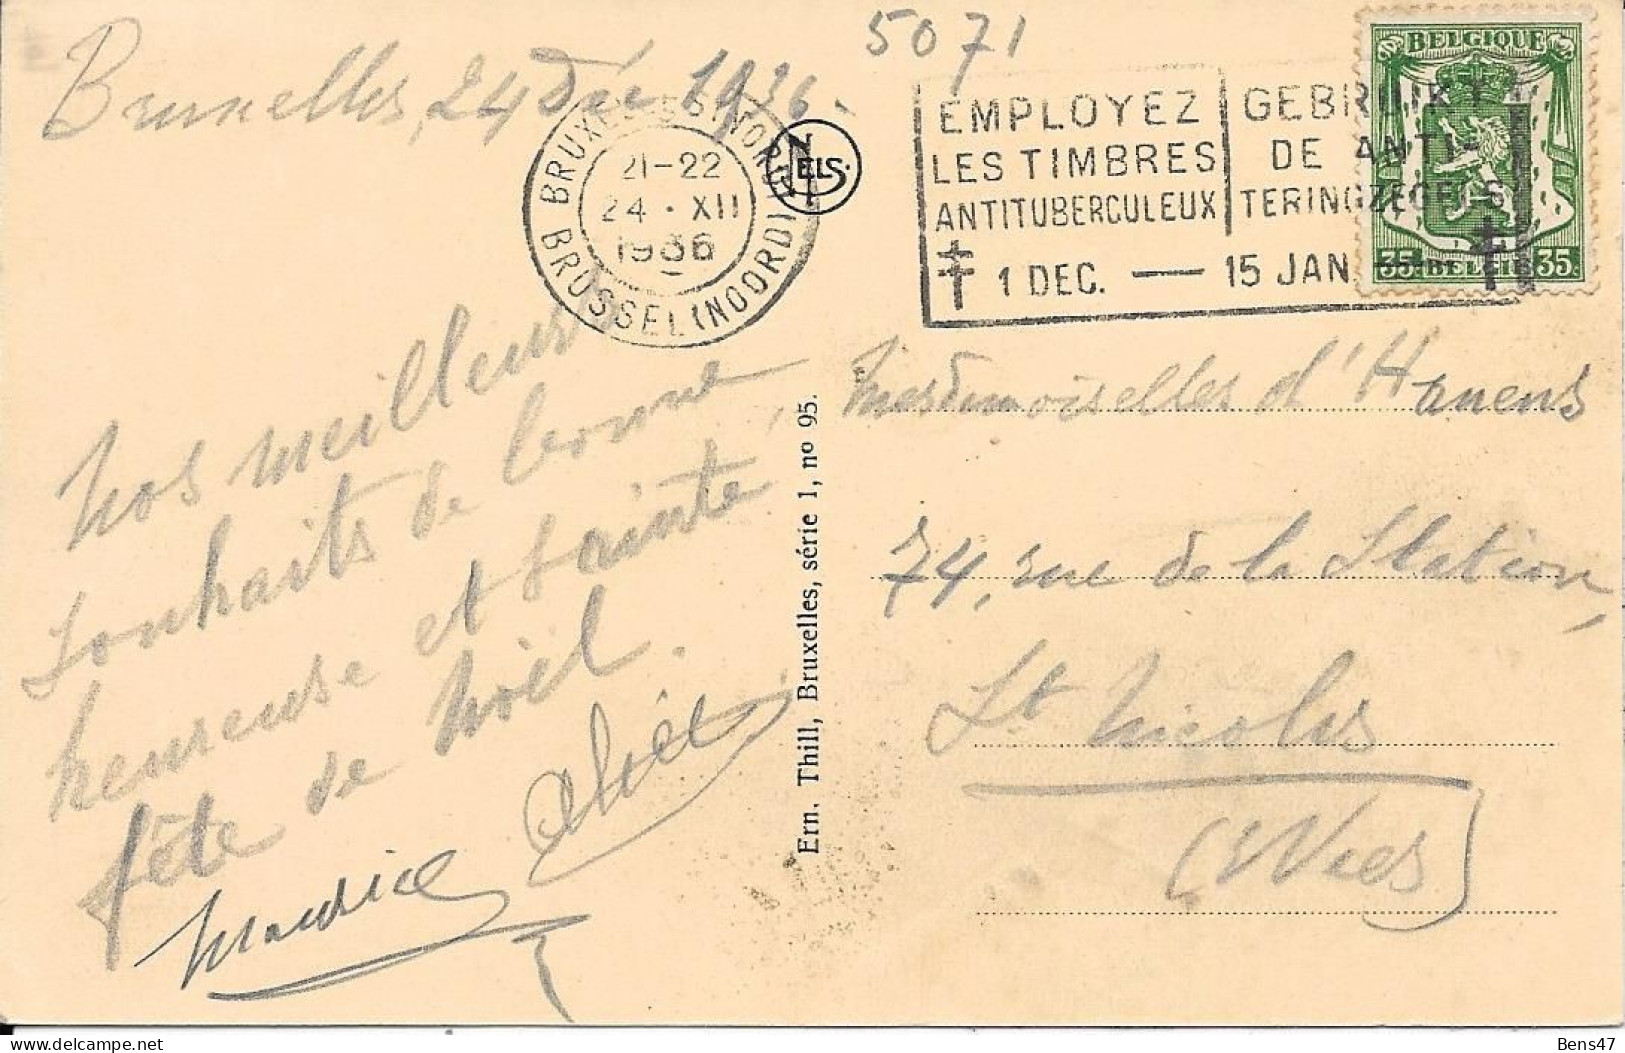 5071
Bruxelles, 24 Déc 1936-
BRUXELLES 5 (NORD)
21-22
24 · XII
1936
BRUSSEL (NOORD)
NELS.
EMPLOYEZ
LES TIMBRES
ANTITUBERCULEUX
GEBRUIKT
DE ANTI-
TERINGZEGELS
1 DEC. — 15 JAN.
BELGIQUE
35 BELGIE 35
Nos meilleurs
souhaits de bonne
heureuse et sainte
fête de Noël.
Maurice
Ern. Thill, Bruxelles, série 1, nº 95.
Mesdemoiselles d'Hanens
74, rue de la Station,
St Nicolas
(Waes)
Bens47